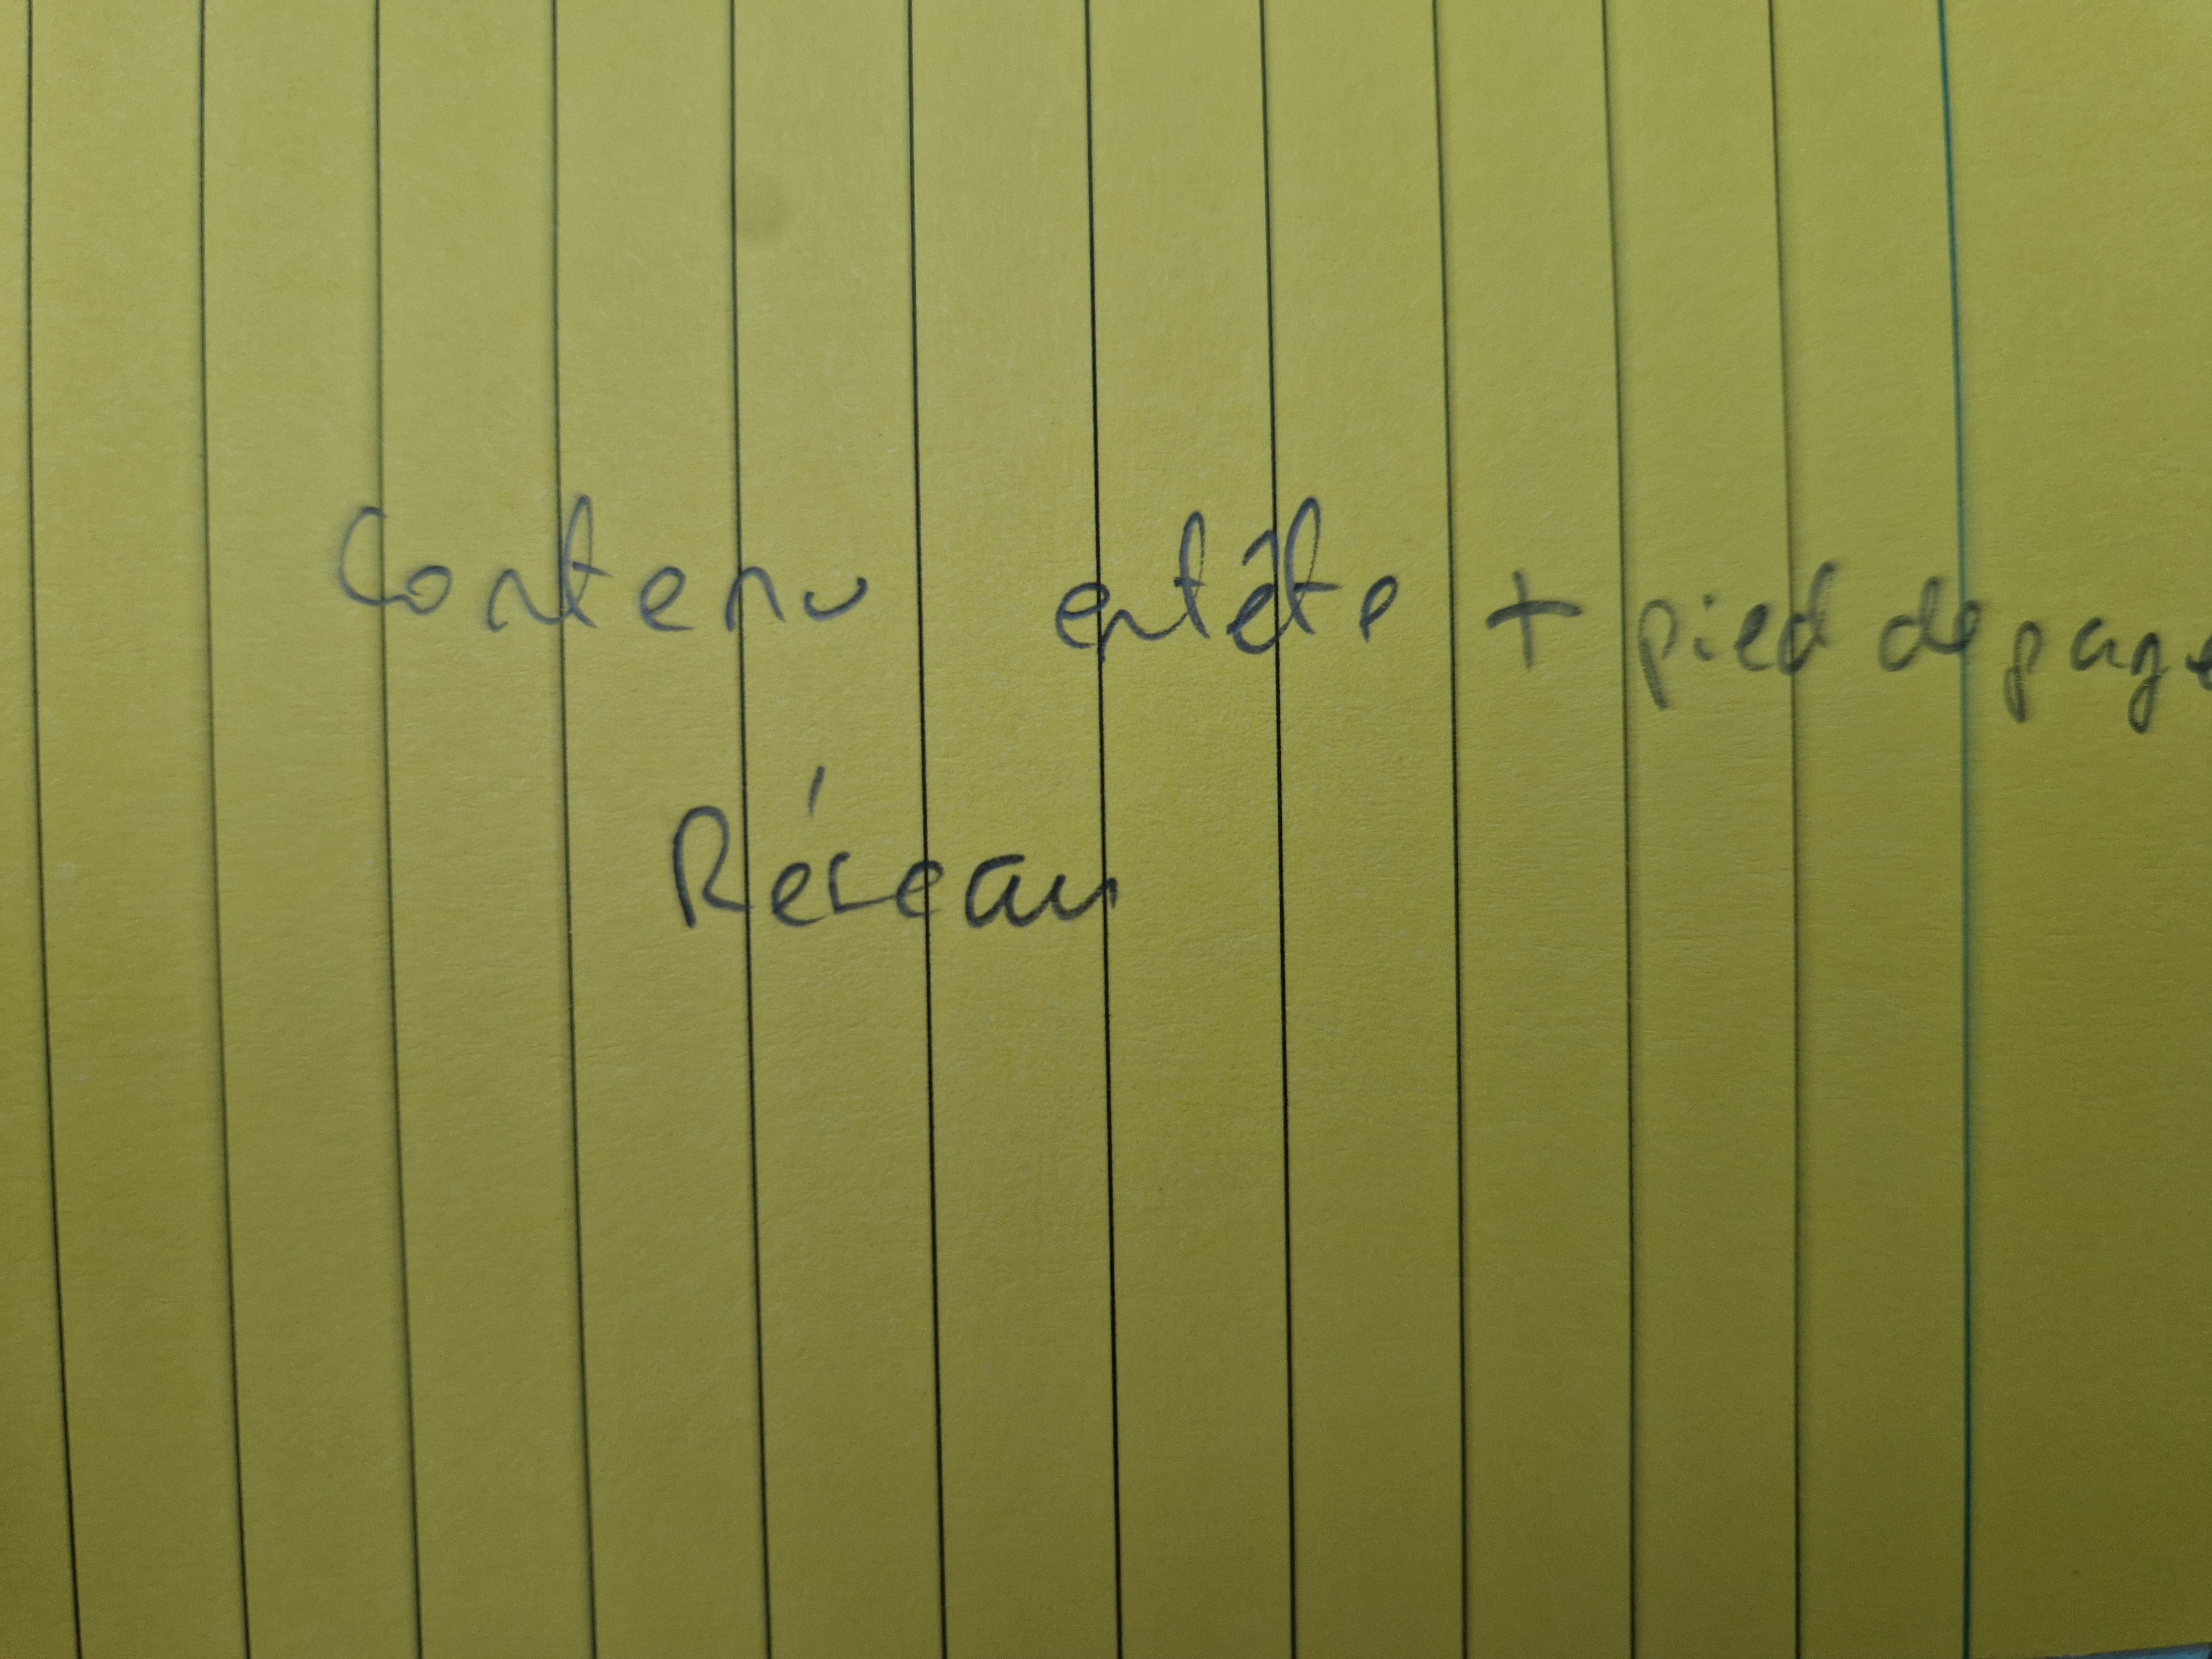 Contenu entête + pied de page
Réseau